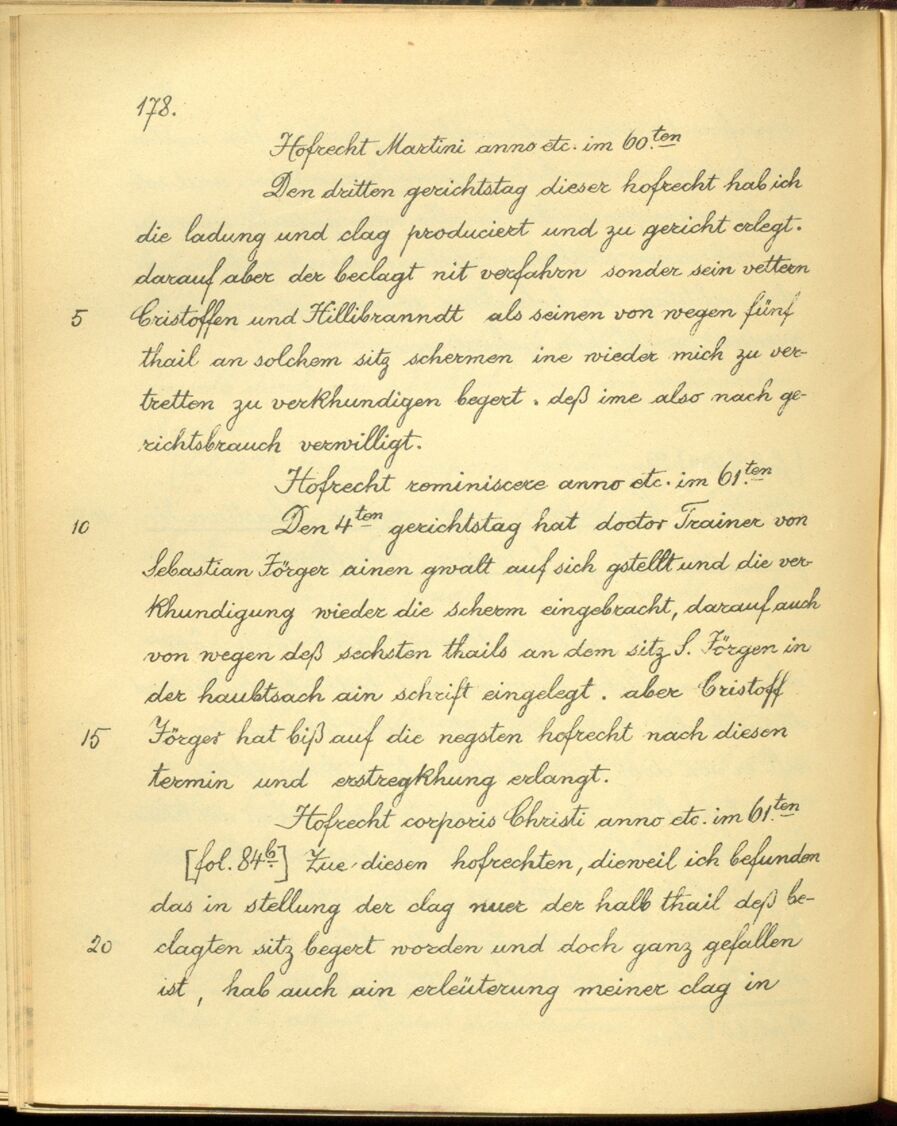 178.
Hofrecht Martini anno etc. im 60.ten
Den dritten gerichtstag dieser hofrecht hab ich
die ladung und clag produciert und zu gericht erlegt.
darauf aber der beclagt nit verfahrn sonder sein vettern
5 Cristoffen und Hillibranndt als seinen von wegen fünf
thail an solchem sitz schermen ine wieder mich zu ver-
tretten zu verkhundigen begert. deß ime also nach ge-
richtsbrauch verwilligt.
Hofrecht reminiscere anno etc. im 61.ten
10 Den 4ten gerichtstag hat doctor Trainer von
Sebastian Jörger ainen gwalt auf sich gstellt und die ver-
khundigung wieder die scherm eingebracht, darauf auch
von wegen deß sechsten thails an dem sitz S. Jörgen in
der haubtsach ain schrift eingelegt. aber Cristoff
15 Jörger hat biß auf die negsten hofrecht nach diesen
termin und erstregkhung erlangt.
Hofrecht corporis Christi anno etc. im 61.ten
[fol. 84b] Zue diesen hofrechten, dieweil ich befunden
das in stellung der clag nuer der halb thail deß be-
20 clagten sitz begert worden und doch ganz gefallen
ist, hab auch ain erleüterung meiner clag in